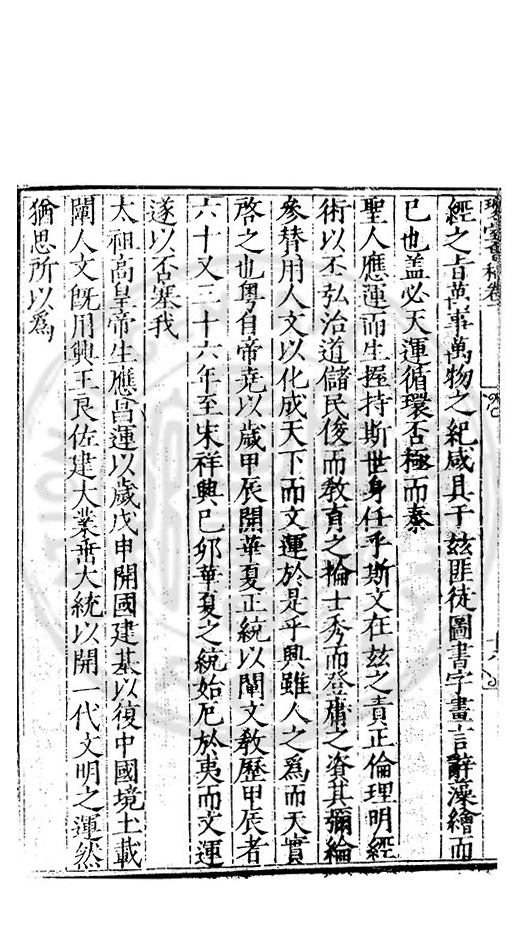 瓊臺會稿卷
經之旨萬事萬物之紀咸具于兹匪徒圖書字畫言辭藻繪而
已也盖必天運循環否極而泰
聖人應運而生握持斯世身任乎斯文在兹之責正倫理明經
術以丕弘治道儲民俊而敎育之掄士秀而登庸之資其彌綸
參賛用人文以化成天下而文運於是乎興雖人之爲而天實
啓之也粤自帝堯以歲甲辰開華夏正統以闡文敎歷甲辰者
六十又三十六年至宋祥興巳夘華夏之統始厄於夷而文運
遂以否塞我
太祖高皇帝生應昌運以歲戊申開國建基以復中國境土載
闡人文旣用興王良佐建大業垂大統以開一代文明之運然
猶思所以爲